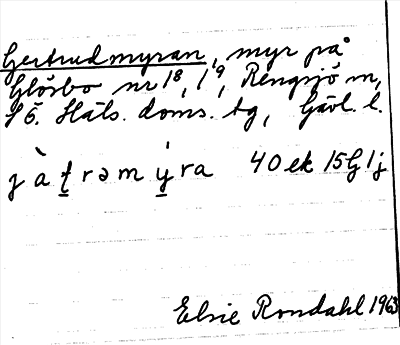 Gertrudmyran, myr på
Glösbo nr 1⁸, 1⁹, Rengsjö sn,
S ö. Häls. doms. tg, Gävl. l.
40 ek 15G 1j
Elsie Rondahl 1963